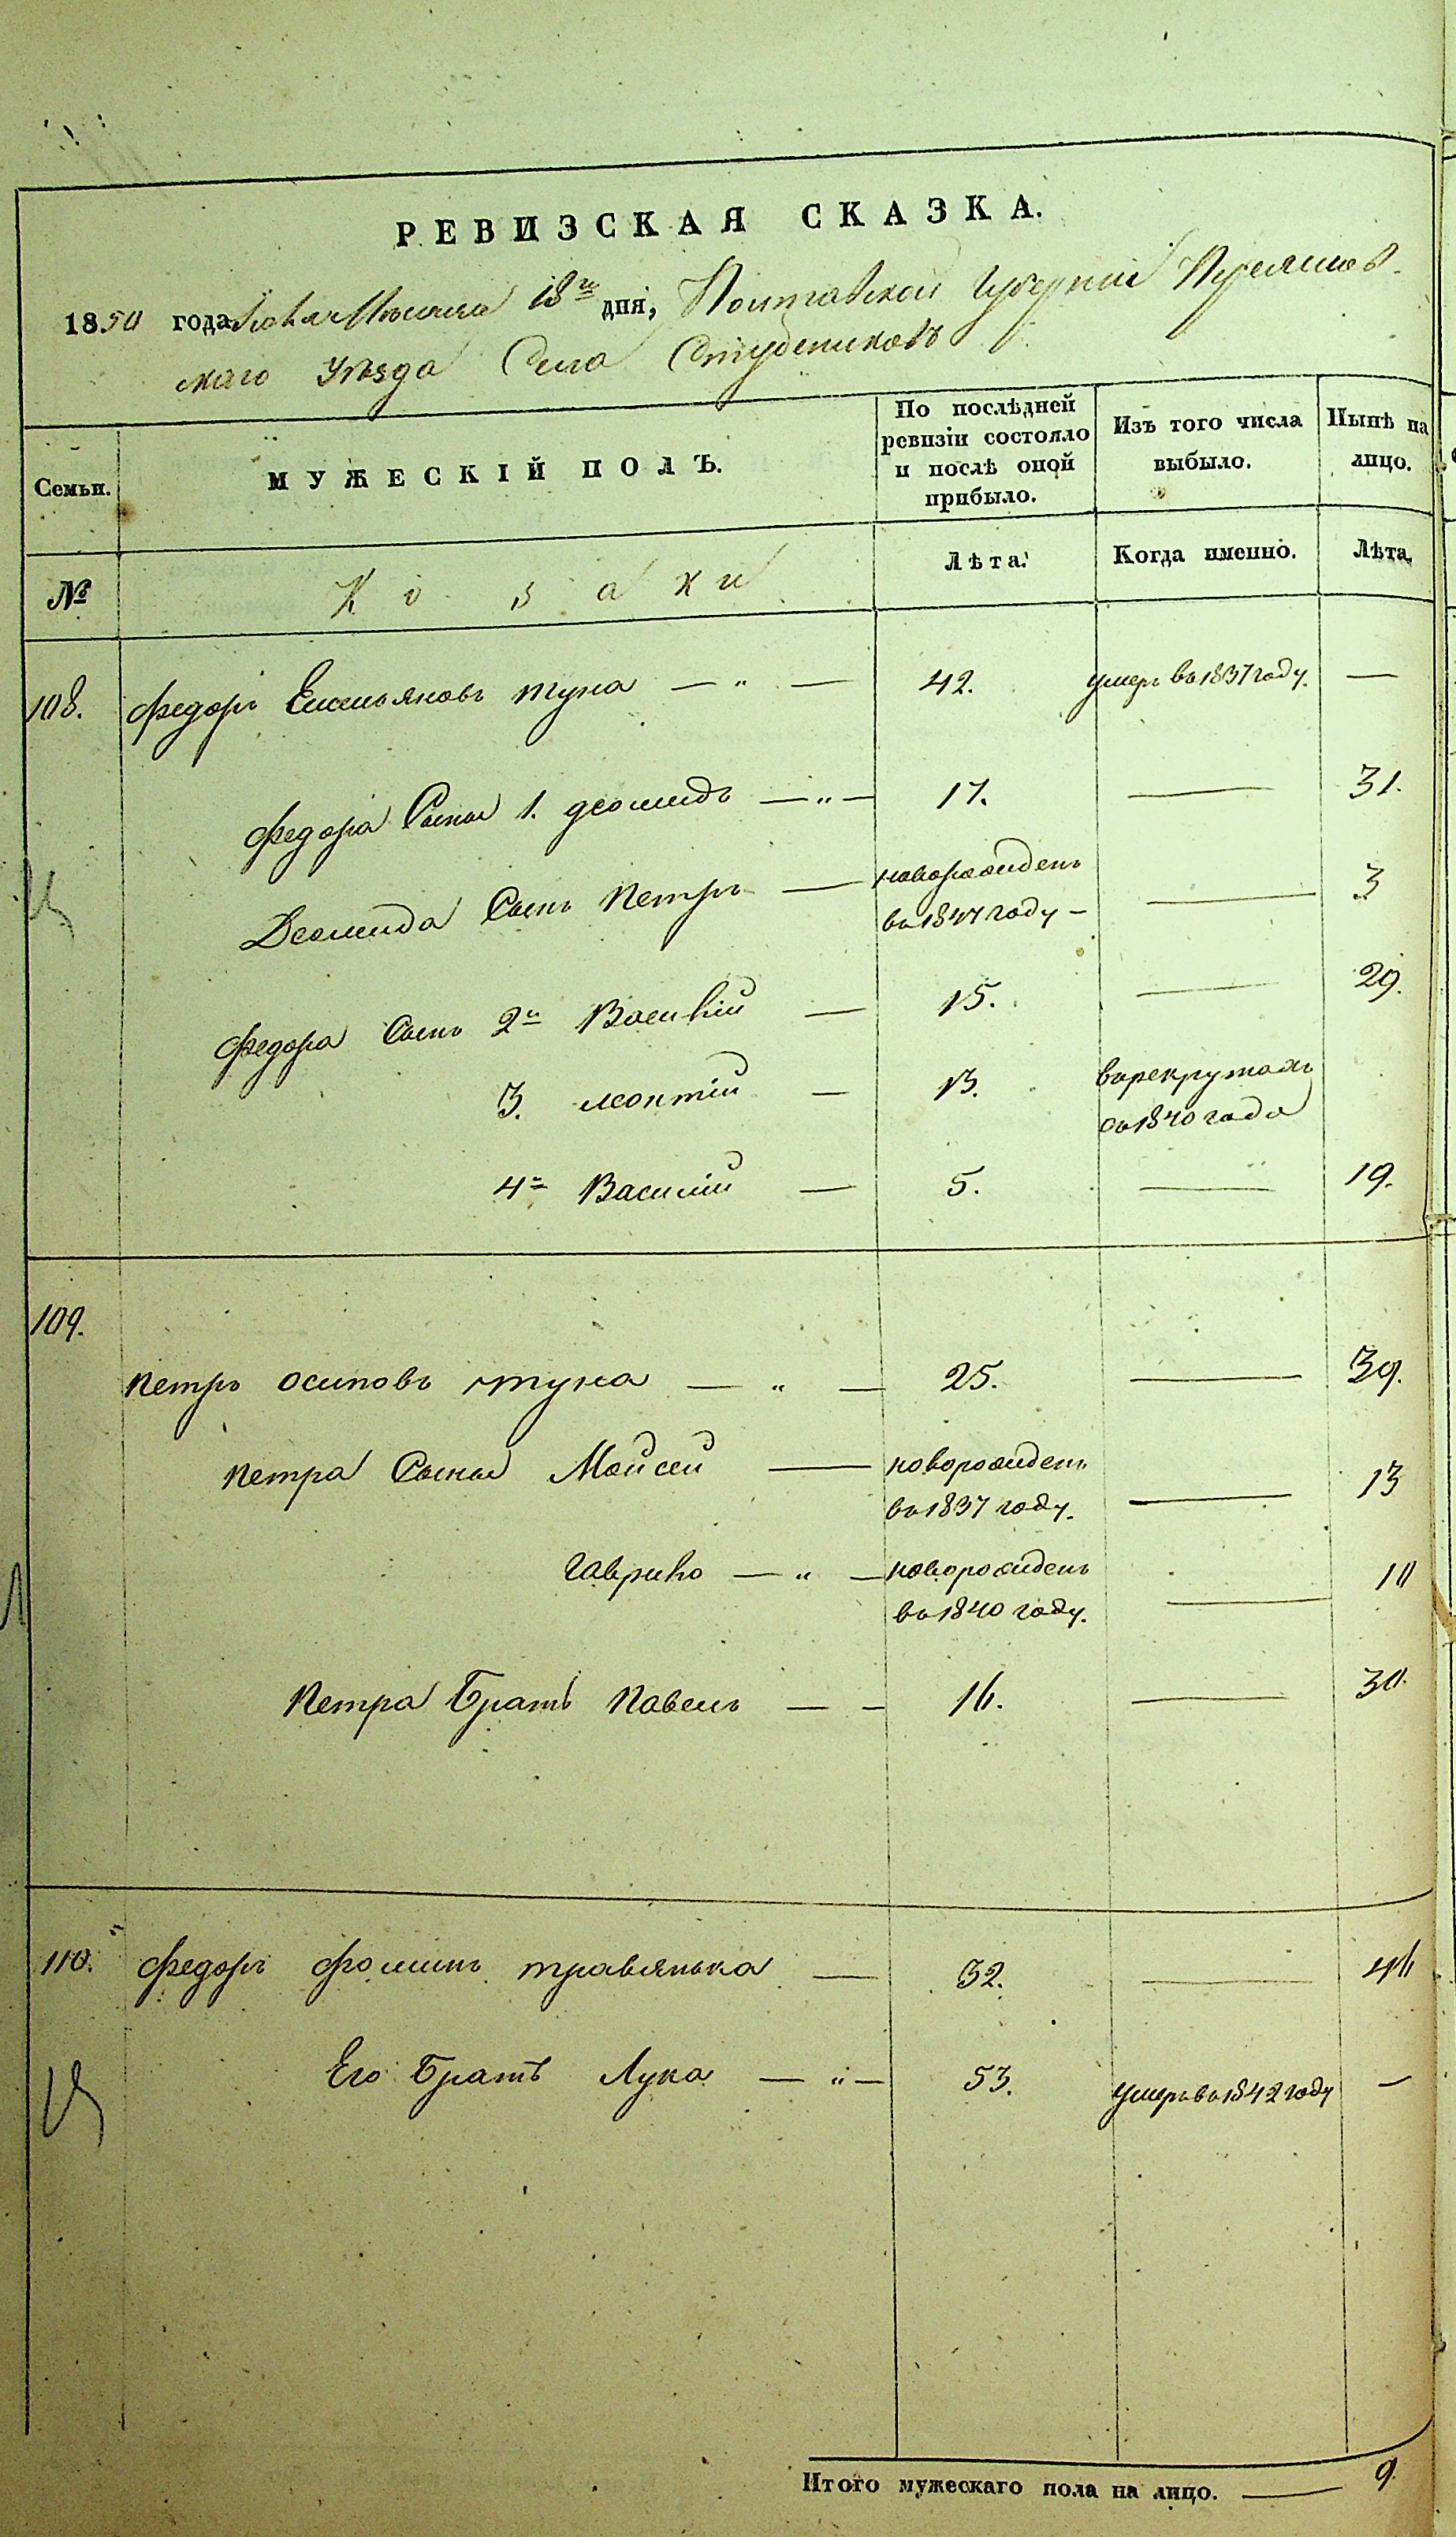 РЕВИЗСКАЯ СКАЗКА.
1850 года Мѣсяца 18го дня, Полтавской Губерніи Переяслов-
скаго Уѣзда Села Студениковъ
Семьи.
МУЖЕСКІЙ ПОЛЪ.
По послѣдней ревизіи состояло и послѣ оной прибыло.
Изъ того числа выбыло.
Нынѣ на лицо.
№
Козаки
Лѣта.
Когда именно.
Лѣта.
108. Федоръ Емельяновъ тука — " — 42. умеръ въ 1837 году. —
Федора Сынъ 1. деомидъ — " — 17. — 31.
Деомида Сынъ Петръ — новорожденъ въ 1847 году — — 3
Федора Сынъ 2й Василій — 15. — 29.
3. леонтій — 13. въ рекрутахъ съ 1840 года
4й Василій — 5. — 19.
109.
Петръ Осиповъ тука — " — 25. — 39.
Петра Сынъ Мойсей — новорожденъ въ 1837 году. — 13
Гаврило — " — новорожденъ въ 1840 году. — 10
Петра Братъ Павелъ — — 16. — 30.
110. Федоръ Фоминъ травянка — 32. — 46
Его Братъ Лука — " — 53. умеръ въ 1842 году —
Итого мужескаго пола на лицо. — 9.